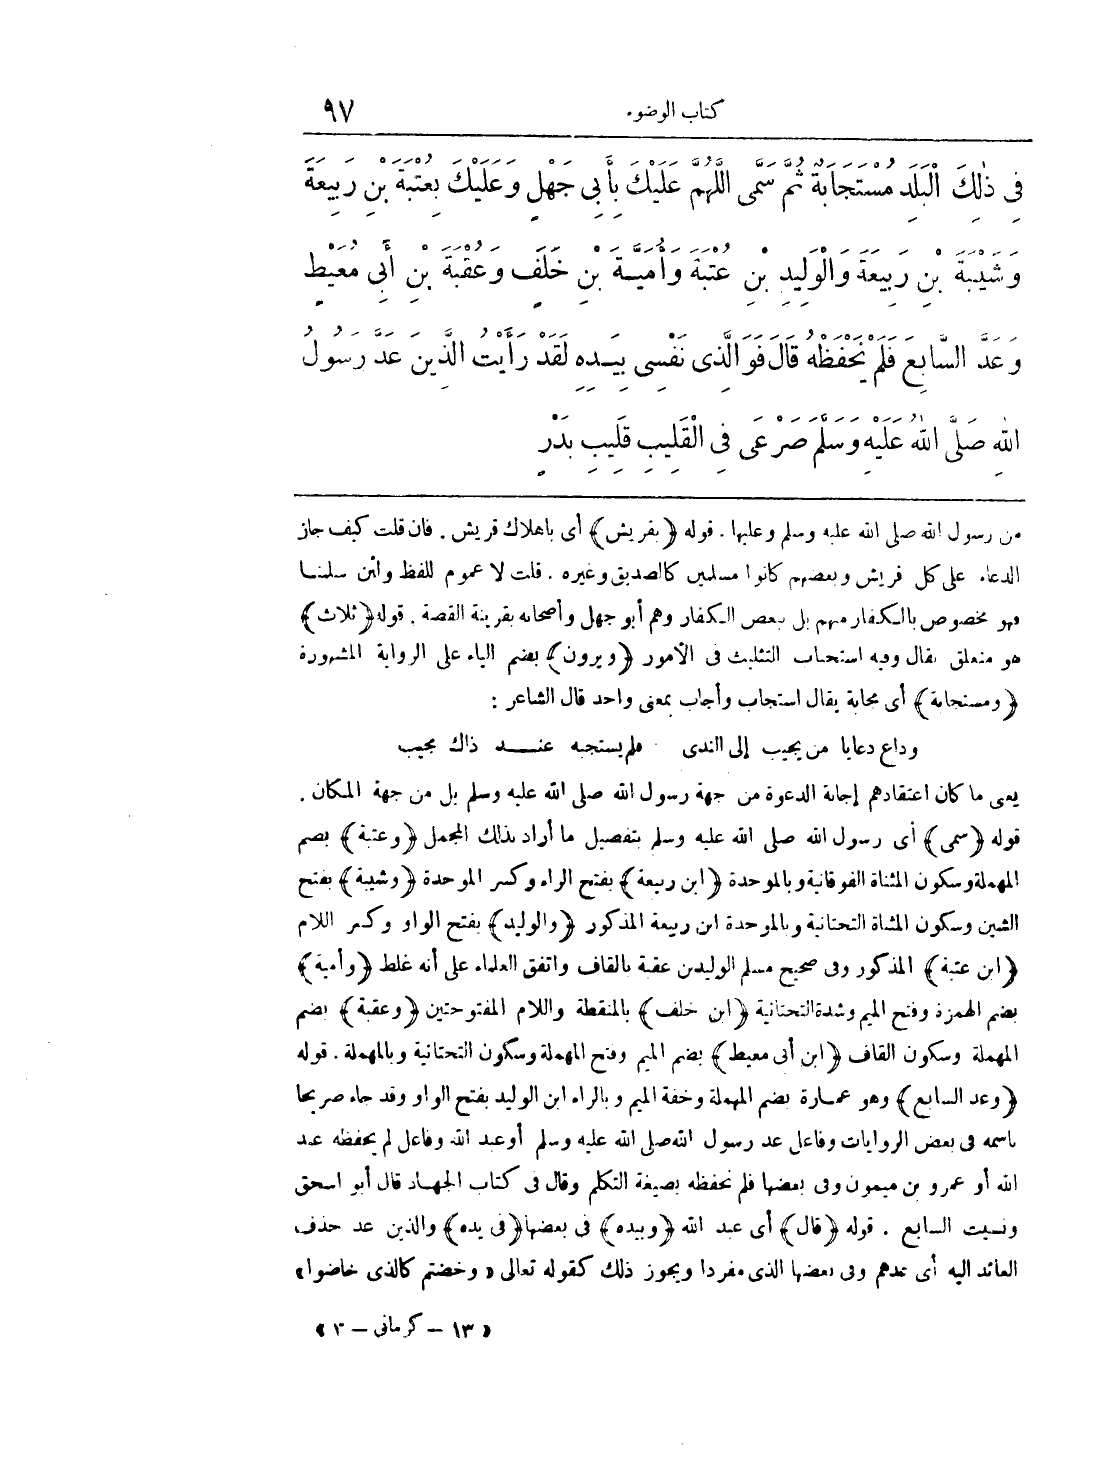 كتاب الوضوء
٩٧
فِي ذٰلِكَ الْبَلَدِ مُسْتَجَابَةٌ ثُمَّ سَمَّى اللَّهُمَّ عَلَيْكَ بِأَبِي جَهْلٍ وَعَلَيْكَ بِعُتْبَةَ بْنِ رَبِيعَةَ
وَشَيْبَةَ بْنِ رَبِيعَةَ وَالْوَلِيدِ بْنِ عُتْبَةَ وَأُمَيَّةَ بْنِ خَلَفٍ وَعُقْبَةَ بْنِ أَبِي مُعَيْطٍ
وَعَدَّ السَّابِعَ فَلَمْ نَحْفَظْهُ قَالَ فَوَالَّذِى نَفْسِى بِيَدِهِ لَقَدْ رَأَيْتُ الَّذِينَ عَدَّ رَسُولُ
اللهِ صَلَّى اللهُ عَلَيْهِ وَسَلَّمَ صَرْعَى فِى الْقَلِيبِ قَلِيبِ بَدْرٍ
من رسول الله صلى الله عليه وسلم وعليها . قوله ﴿بقريش﴾ أى باهلاك قريش . فان قلت كيف جاز
الدعاء على كل قريش وبعضهم كانوا مسلمين كالصديق وغيره . قلت لا عموم للفظ ولئن سلمنا
فهو مخصوص بالكفار منهم بل ببعض الكفار وهم أبو جهل وأصحابه بقرينة القصة . قوله ﴿ثلاث﴾
هو متعلق بقال وفيه استحباب التثليث فى الأمور ﴿ويرون﴾ بضم الياء على الرواية المشهورة
﴿ومستجابة﴾ أى مجابة يقال استجاب وأجاب بمعنى واحد قال الشاعر :
وداع دعايا من يجيب إلى الندى فلم يستجبه عند ذاك مجيب
يعنى ما كان اعتقادهم إجابة الدعوة من جهة رسول الله صلى الله عليه وسلم بل من جهة المكان .
قوله ﴿سمى﴾ أى رسول الله صلى الله عليه وسلم بتفصيل ما أراد بذلك المجمل ﴿وعتبة﴾ بضم
المهملة وسكون المثناة الفوقانية وبالموحدة ﴿ابن ربيعة﴾ بفتح الراء وكسر الموحدة ﴿وشيبة﴾ بفتح
الشين وسكون المثناة التحتانية وبالموحدة ابن ربيعة المذكور ﴿والوليد﴾ بفتح الواو وكسر اللام
﴿ابن عتبة﴾ المذكور وفى صحيح مسلم الوليد بن عقبة بالقاف واتفق العلماء على أنه غلط ﴿وأمية﴾
بضم الهمزة وفتح الميم وشدة التحتانية ﴿ابن خلف﴾ بالمنقطة واللام المفتوحتين ﴿وعقبة﴾ بضم
المهملة وسكون القاف ﴿ابن أبى معيط﴾ بضم الميم وفتح المهملة وسكون التحتانية وبالمهملة . قوله
﴿وعد السابع﴾ وهو عمارة بضم المهملة وخفة الميم وبالراء ابن الوليد بفتح الواو وقد جاء صريحا
باسمه فى بعض الروايات وفاعل عد رسول الله صلى الله عليه وسلم أو عبد الله وفاعل لم يحفظه عبد
الله أو عمرو بن ميمون وفى بعضها فلم نحفظه بصيغة التكلم وقال فى كتاب الجهاد قال أبو اسحق
ونسيت السابع . قوله ﴿قال﴾ أى عبد الله ﴿وبيده﴾ فى بعضها ﴿فى يده﴾ والذين عد حذف
العائد اليه أى عدهم وفى بعضها الذى مفردا ويجوز ذلك كقوله تعالى « وخضتم كالذى خاضوا»
« ١٣ - كرمانى - ٣ »